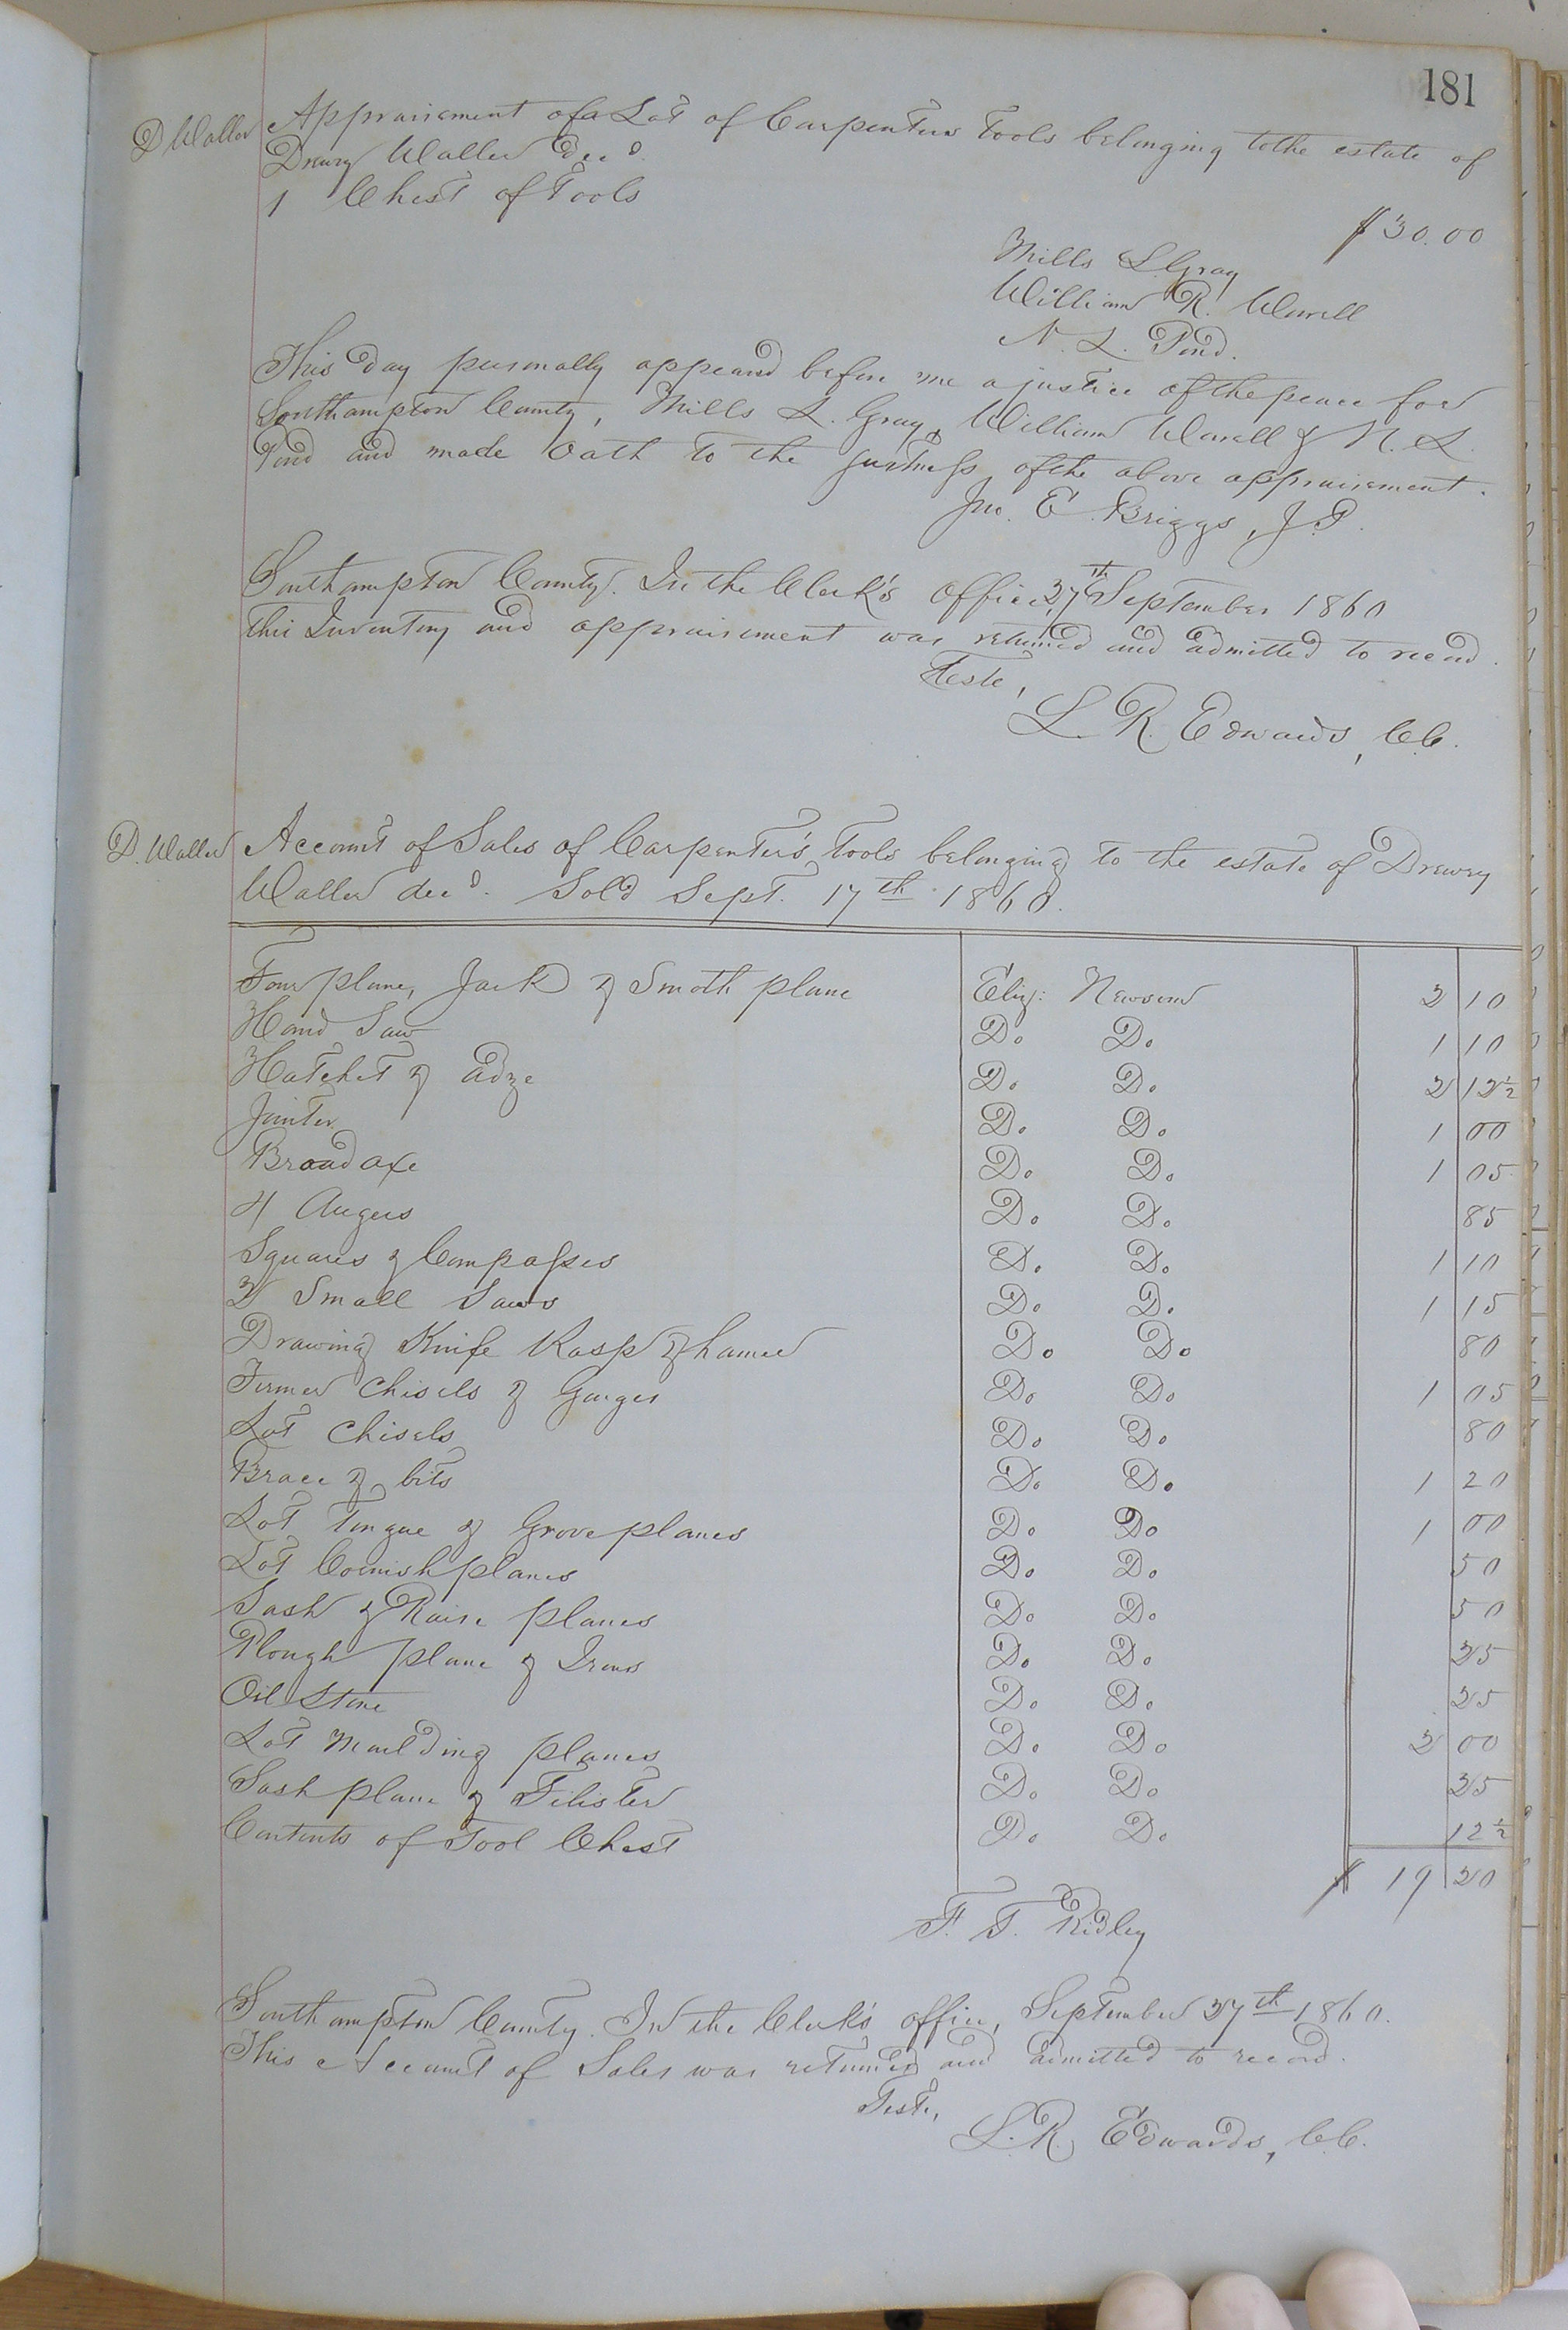 181
D Waller Appraisement of a Lot of Carpenters Tools belonging to the estate of
Drewry Waller decd.
1 Chest of Tools $30.00
Mills L. Gray
William R. Worrell
N. L. Pond.
This day personally appeared before me a justice of the peace for
Southampton County, Mills L. Gray, William Worrell & N. L.
Pond and made oath to the justness of the above appraisement.
Jno. E. Briggs, J.P.
Southampton County. In the Clerk's office, 27th September 1860
This Inventory and appraisement was returned and admitted to record.
Teste,
L. R. Edwards, C.C.
D. Waller Account of Sales of Carpenter's Tools belonging to the estate of Drewry
Waller decd. Sold Sept. 17th 1860.
Four plane, Jack & Smoth plane Eliz: Newsom 2 10
Hand Saw Do. Do. 1 10
Hatchet & adze Do. Do. 2 12½
Jointer Do. Do. 1 00
Broad axe Do. Do. 1 05
4 Augers Do. Do. 85
Squares & Compasses Do. Do. 1 10
2 Small Saws Do. Do. 1 15
Drawing Knife Rasp & hamer Do. Do. 80
Firmer Chisels & Gouges Do. Do. 1 05
Lot Chisels Do. Do. 80
Brace & bits Do. Do. 1 20
Lot Tongue & Grove planes Do. Do. 1 00
Lot Cornish planes Do. Do. 50
Sash & Raise planes Do. Do. 50
Plough plane & Irons Do. Do. 25
Oil Stone Do. Do. 25
Lot Moulding planes Do. Do. 2 00
Sash plane & Filister Do. Do. 25
Contents of Tool Chest Do. Do. 12½
$ 19 20
F. T. Ridley
Southampton County. In the Clerk's office, September 27th 1860.
This Account of Sales was returned and admitted to record.
Teste,
L. R. Edwards, C.C.